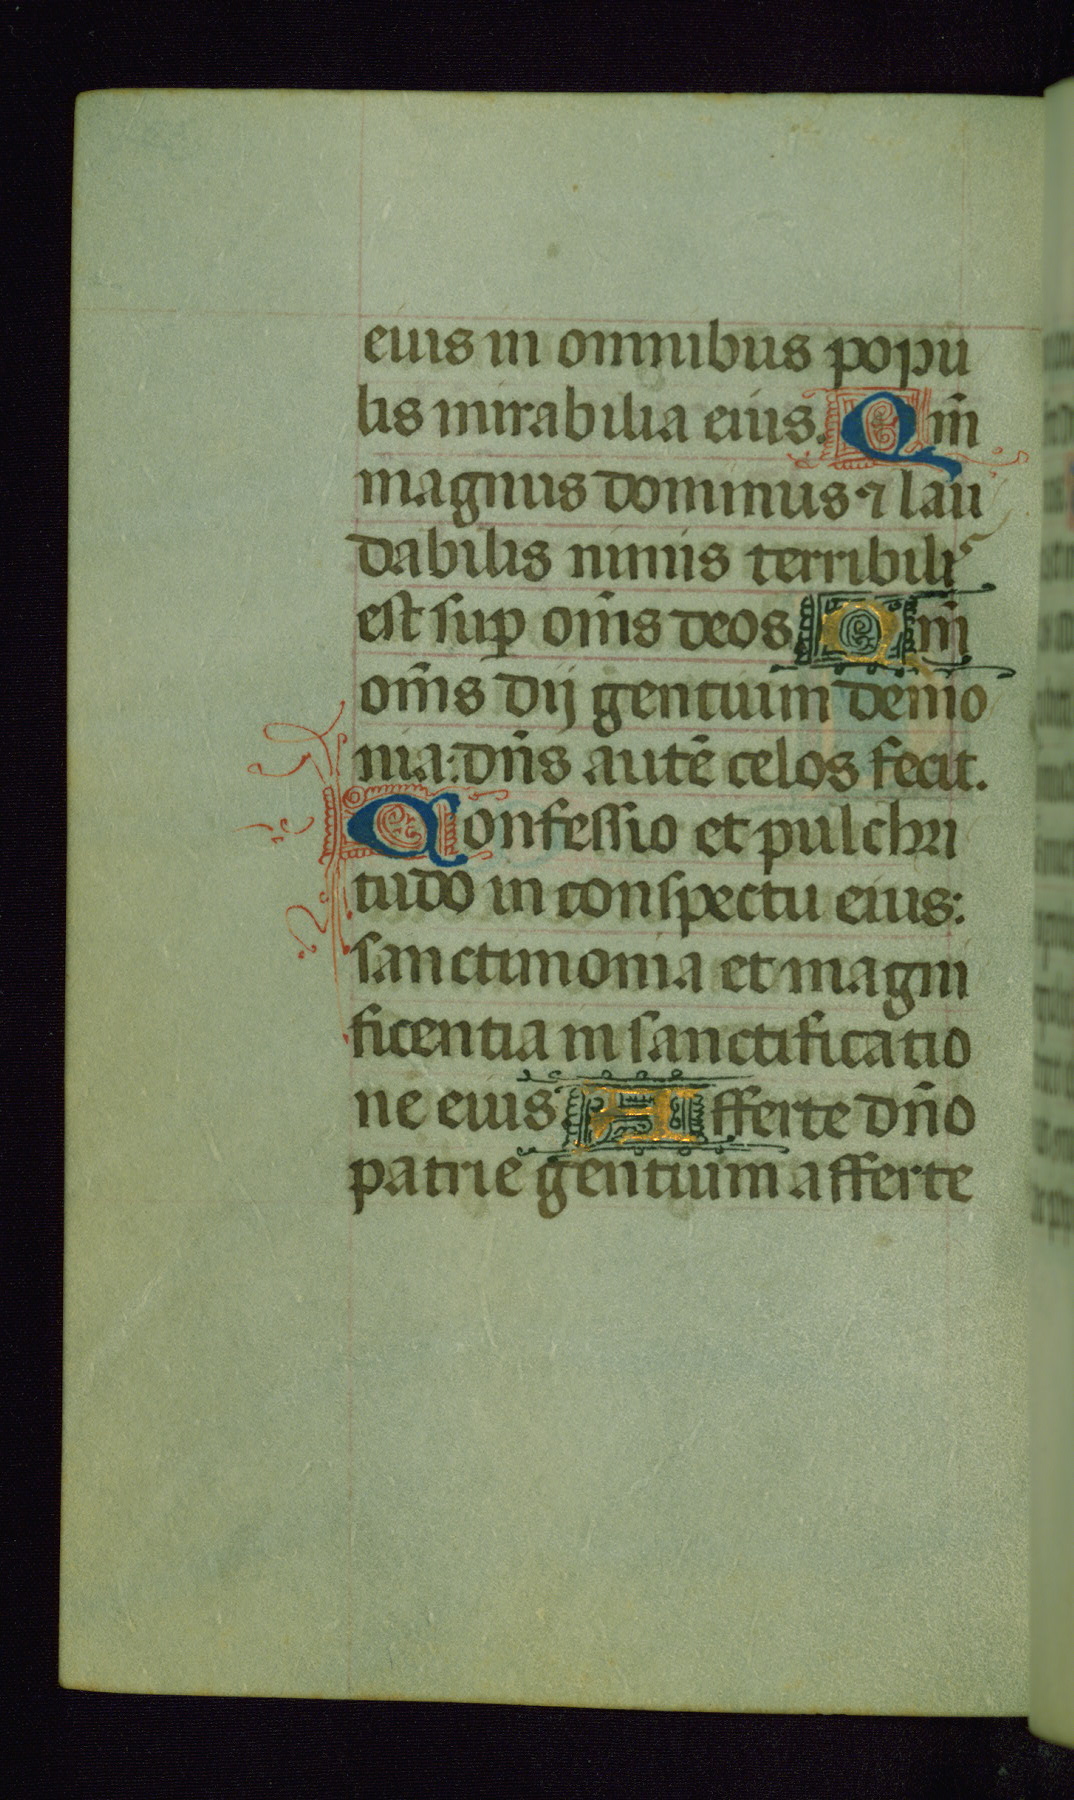 eius in omnibus popu
lis mirabilia eius. Qm̄
magnus dominus ⁊ lau
dabilis nimis terribilis
est sup om̄s deos Qm̄
om̄s dij gentium demo
nia: dn̄s autē celos fecit.
Confessio et pulchri
tudo in conspectu eius:
sanctimonia et magni
ficentia in sanctificatio
ne eius Afferte dn̄o
patrie gentium afferte